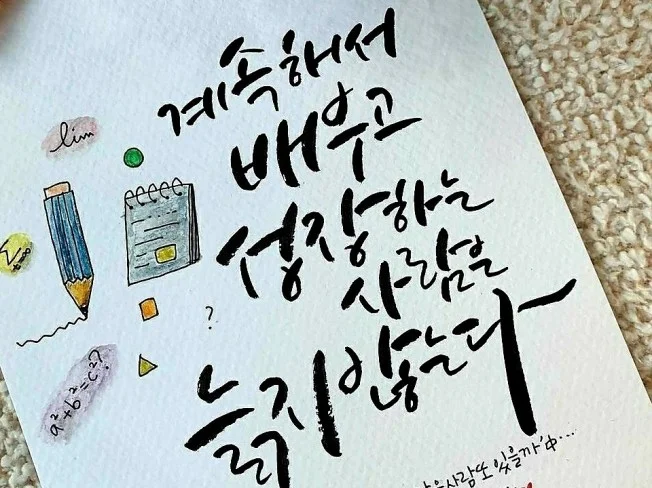 계속해서
배우고
성장하는
사람은
늙지 않는다
lim
∑
?
a²+b²=c²?
사람 또 있을까' 中...